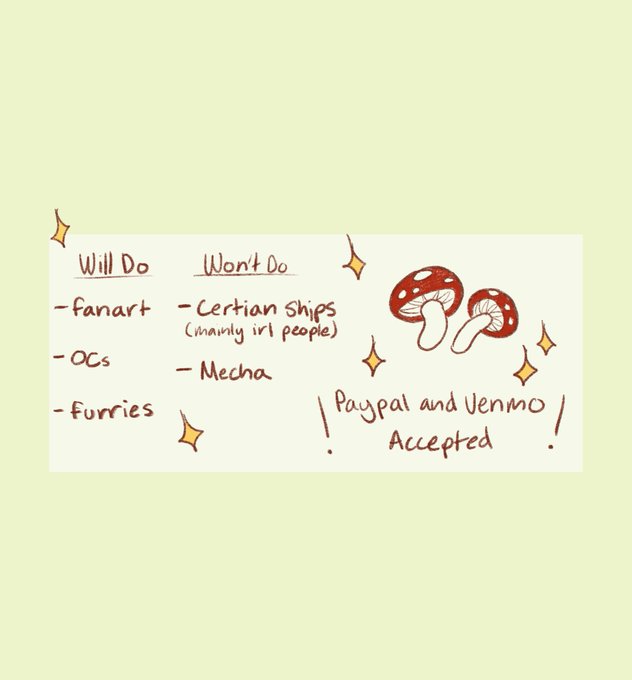 Will Do
- fanart
- OCs
- furries
Won't Do
- Certian ships
(mainly irl people)
- Mecha
! Paypal and Venmo !
Accepted